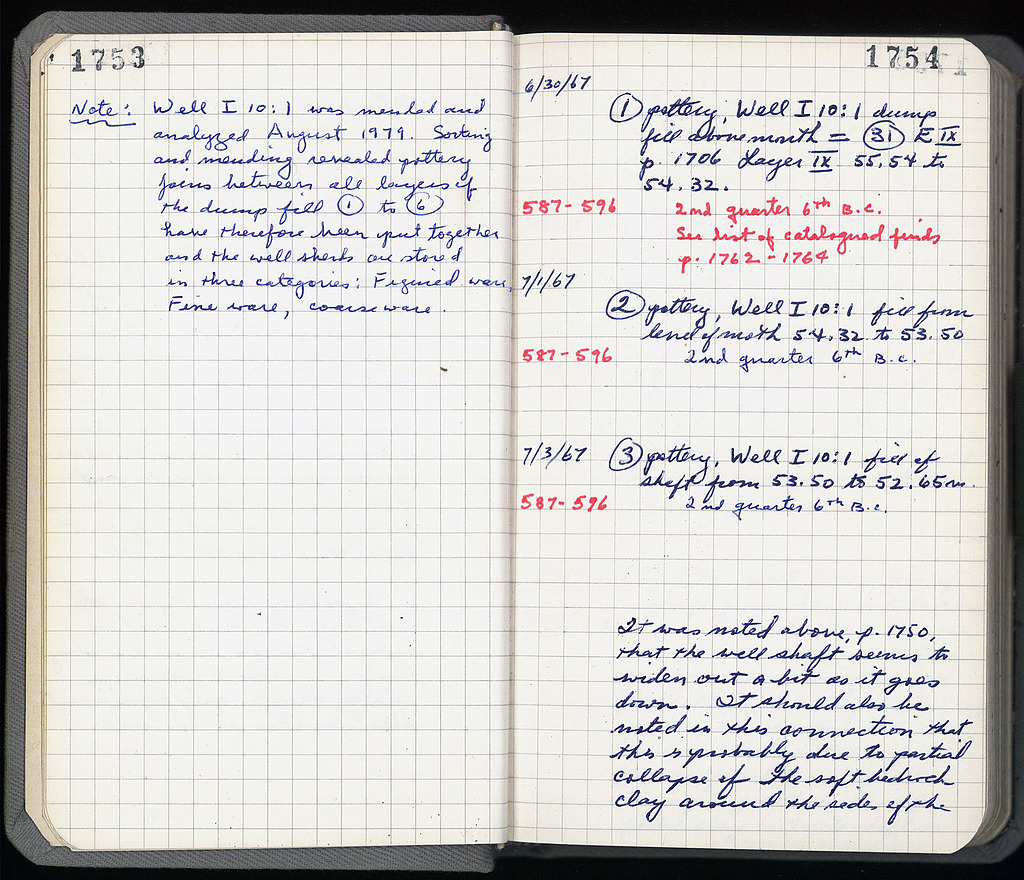 1753
Note: Well I 10:1 was mended and
analyzed August 1979. Sorting
and mending revealed pottery
joins between all layers of
the dump fill ① to ⑥
have therefore been put together
and the well sherds are stored
in three categories: Figured ware,
Fine ware, coarse ware.
1754
6/30/67
① pottery, Well I 10:1 dump
fill above mouth = 31 E IX
p. 1706 Layer IX 55.54 to
54.32.
587-596 2nd quarter 6th B.C.
See list of catalogued finds
p. 1762 - 1764
7/1/67
② pottery, Well I 10:1 fill from
level of moth 54.32 to 53.50
587-596 2nd quarter 6th B.C.
7/3/67 ③ pottery, Well I 10:1 fill of
shaft from 53.50 to 52.65m.
587-596 2nd quarter 6th B.C.
It was noted above, p. 1750,
that the well shaft seems to
widen out a bit as it goes
down. It should also be
noted in this connection that
this is probably due to partial
collapse of the soft bedrock
clay around the sides of the